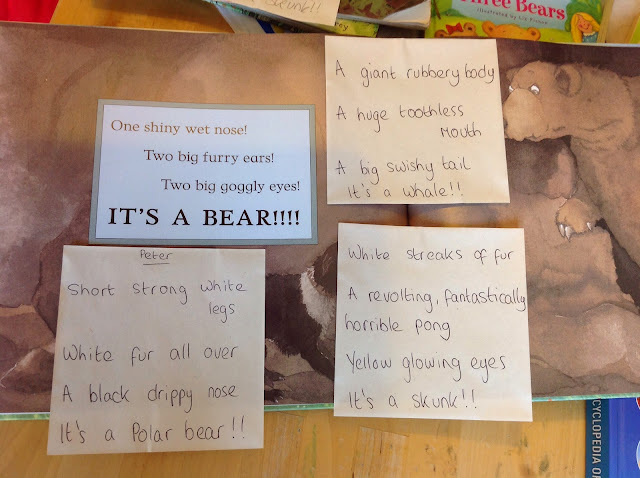 Skunk!!
Three Bears
illustrated by Liz Pichon
One shiny wet nose!
Two big furry ears!
Two big goggly eyes!
IT'S A BEAR!!!!
A giant rubbery body
A huge toothless
Mouth
A big swishy tail
It's a whale!!
Peter
Short strong white
legs
White fur all over
A black drippy nose
It's a Polar bear!!
White streaks of fur
A revolting, fantastically
horrible pong
Yellow glowing eyes
It's a Skunk!!
CYCLOPEDIA